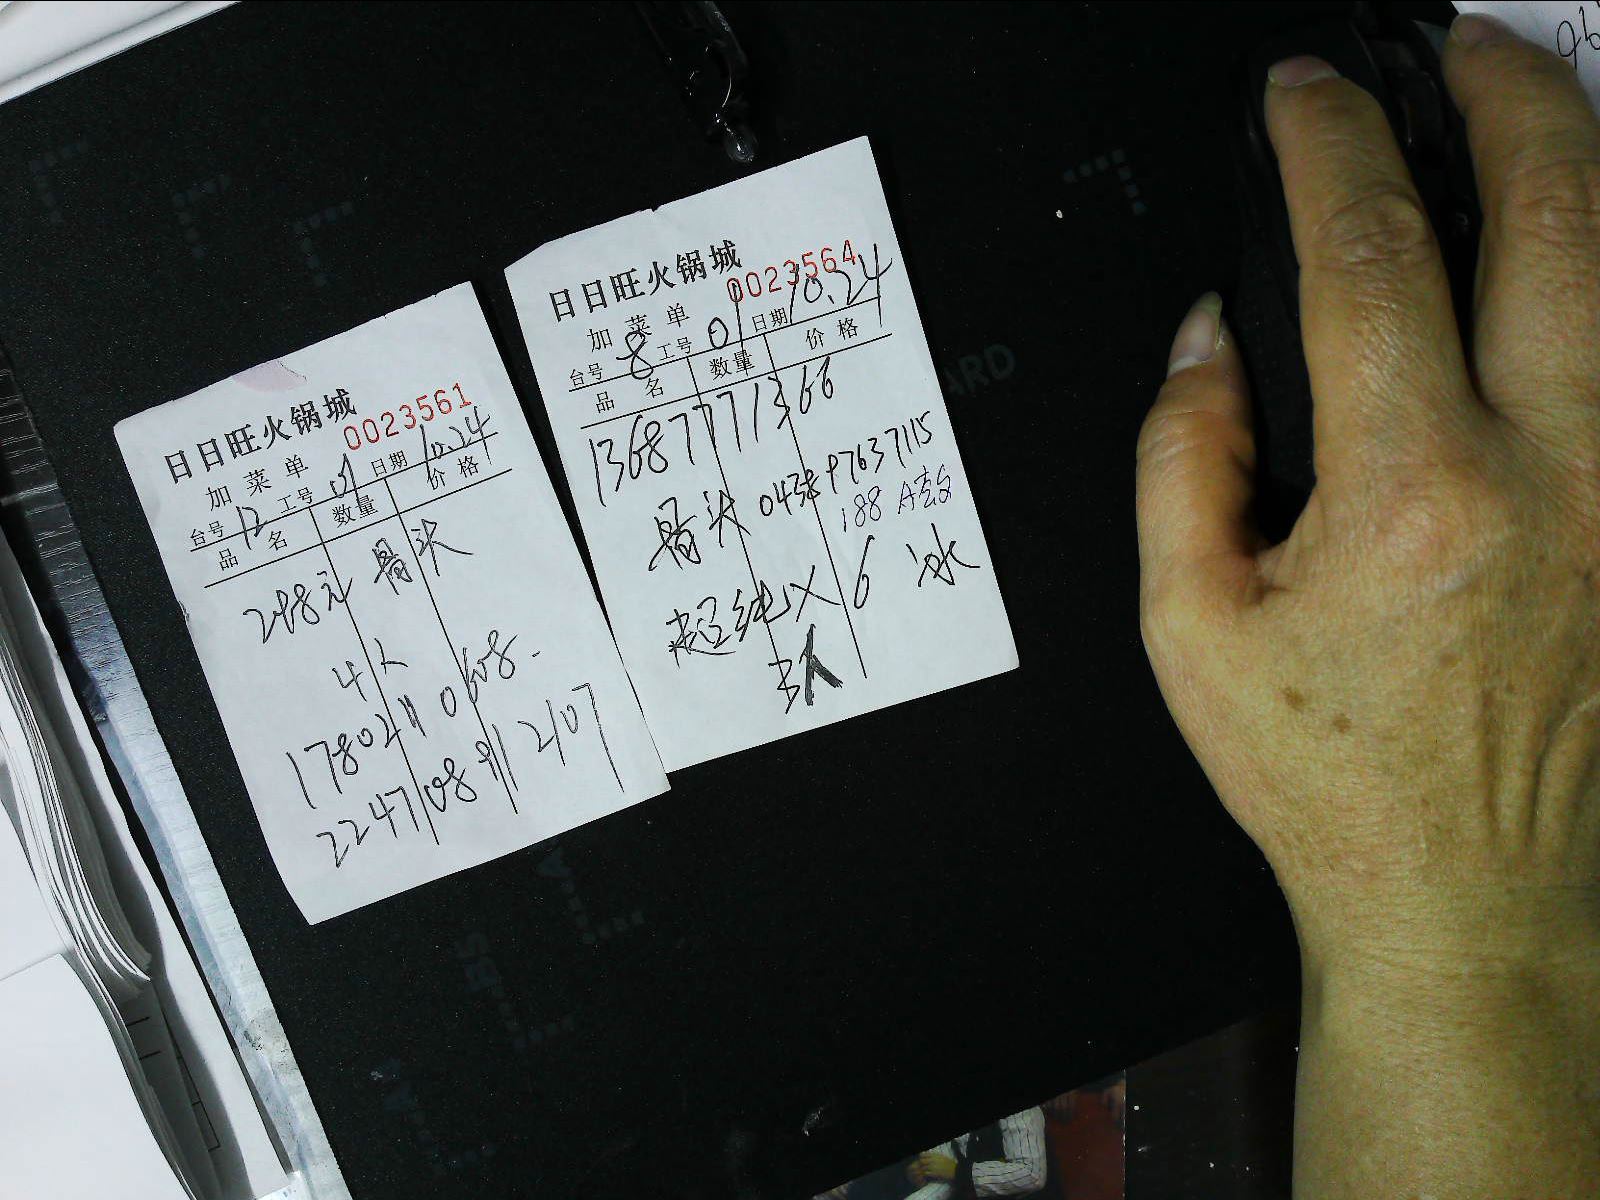 日日旺火锅城
0023561
加菜单
台号 12 工号 01 日期 10.24
品名 数量 价格
248元 骨头
4人
17802110608.
2247108912107
日日旺火锅城
0023564
加菜单
台号 8 工号 01 日期 10.24
品名 数量 价格
13687771366
骨头 0435 97637115
188 A套
超纯X6 冰
3人
ARD
96